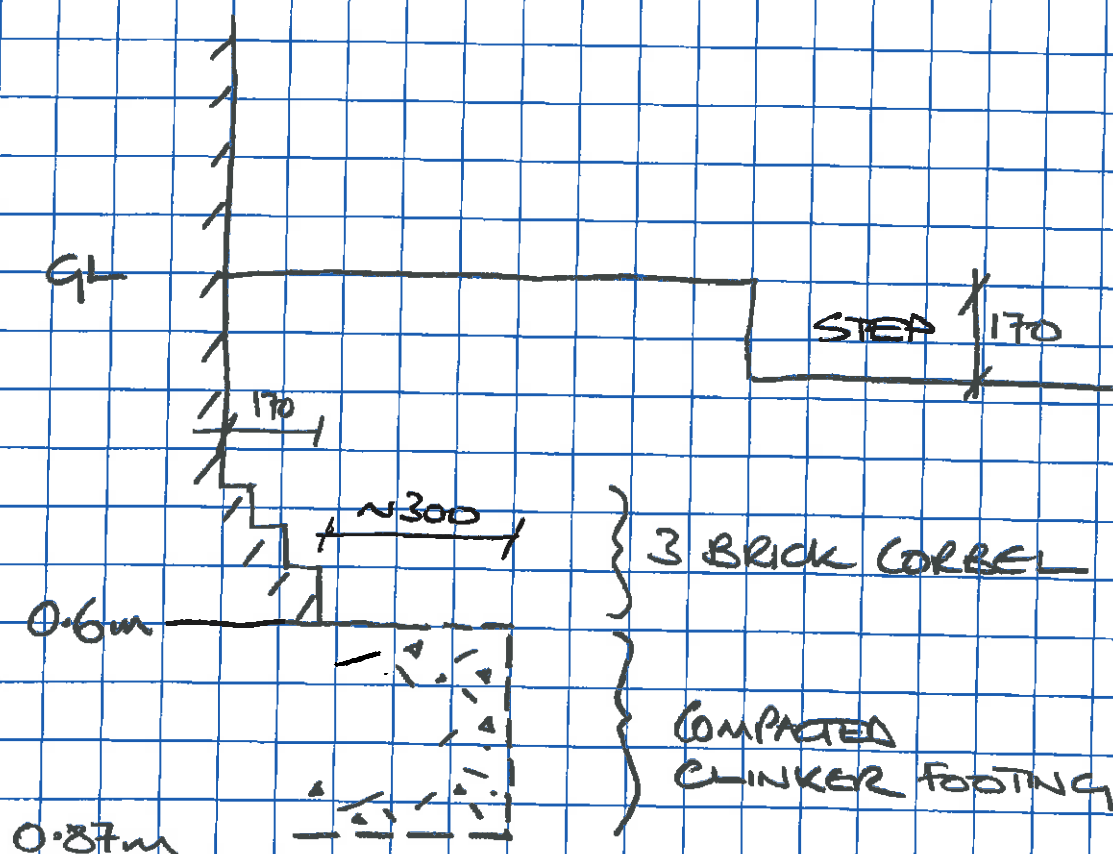 GL
STEP
170
170
~300
3 BRICK CORBEL
0.6m
COMPACTED
CLINKER FOOTING
0.87m